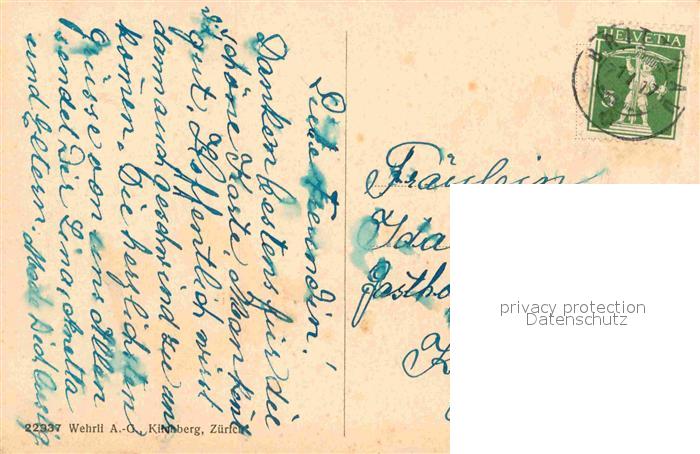 Liebe Freundin!
Danken bestens für die
schöne Karte. Man kennt
gut. Hoffentlich wirst
dann auch geschwind zu uns
kommen. Die herzlichsten
Grüsse von uns Allen
sendet Dir Lina, Anetta
und Eltern.
Fräulein
Ida
Gastho
K
HELVETIA
5
22937 Wehrli A.-G., Kilchberg, Zürich
privacy protection
Datenschutz